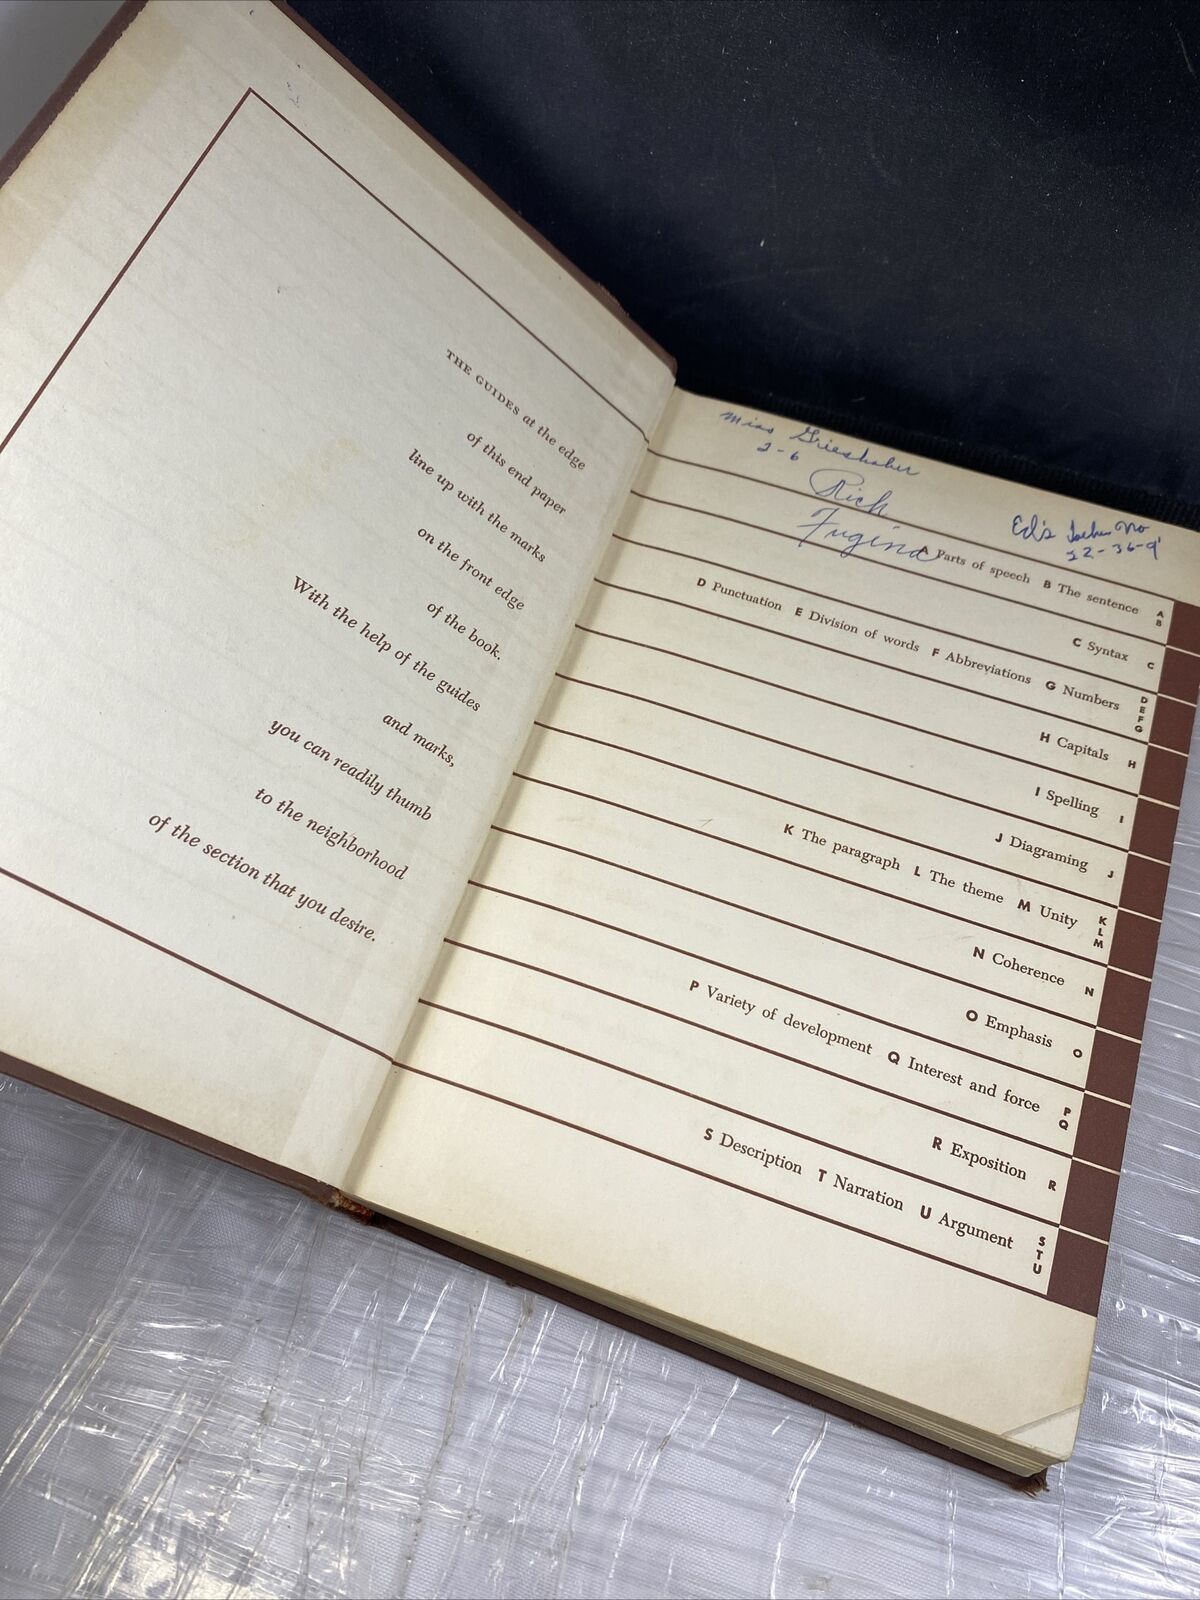 THE GUIDES at the edge
of this end paper
line up with the marks
on the front edge
of the book.
With the help of the guides
and marks,
you can readily thumb
to the neighborhood
of the section that you desire.
Miss Grieshaber
2-6
Rich
Fugina
Ed's
22-36-9
A Parts of speech B The sentence A B
C Syntax C
D Punctuation E Division of words F Abbreviations G Numbers D E F G
H Capitals H
I Spelling I
J Diagraming J
K The paragraph L The theme M Unity K L M
N Coherence N
O Emphasis O
P Variety of development Q Interest and force P Q
R Exposition R
S Description T Narration U Argument S T U